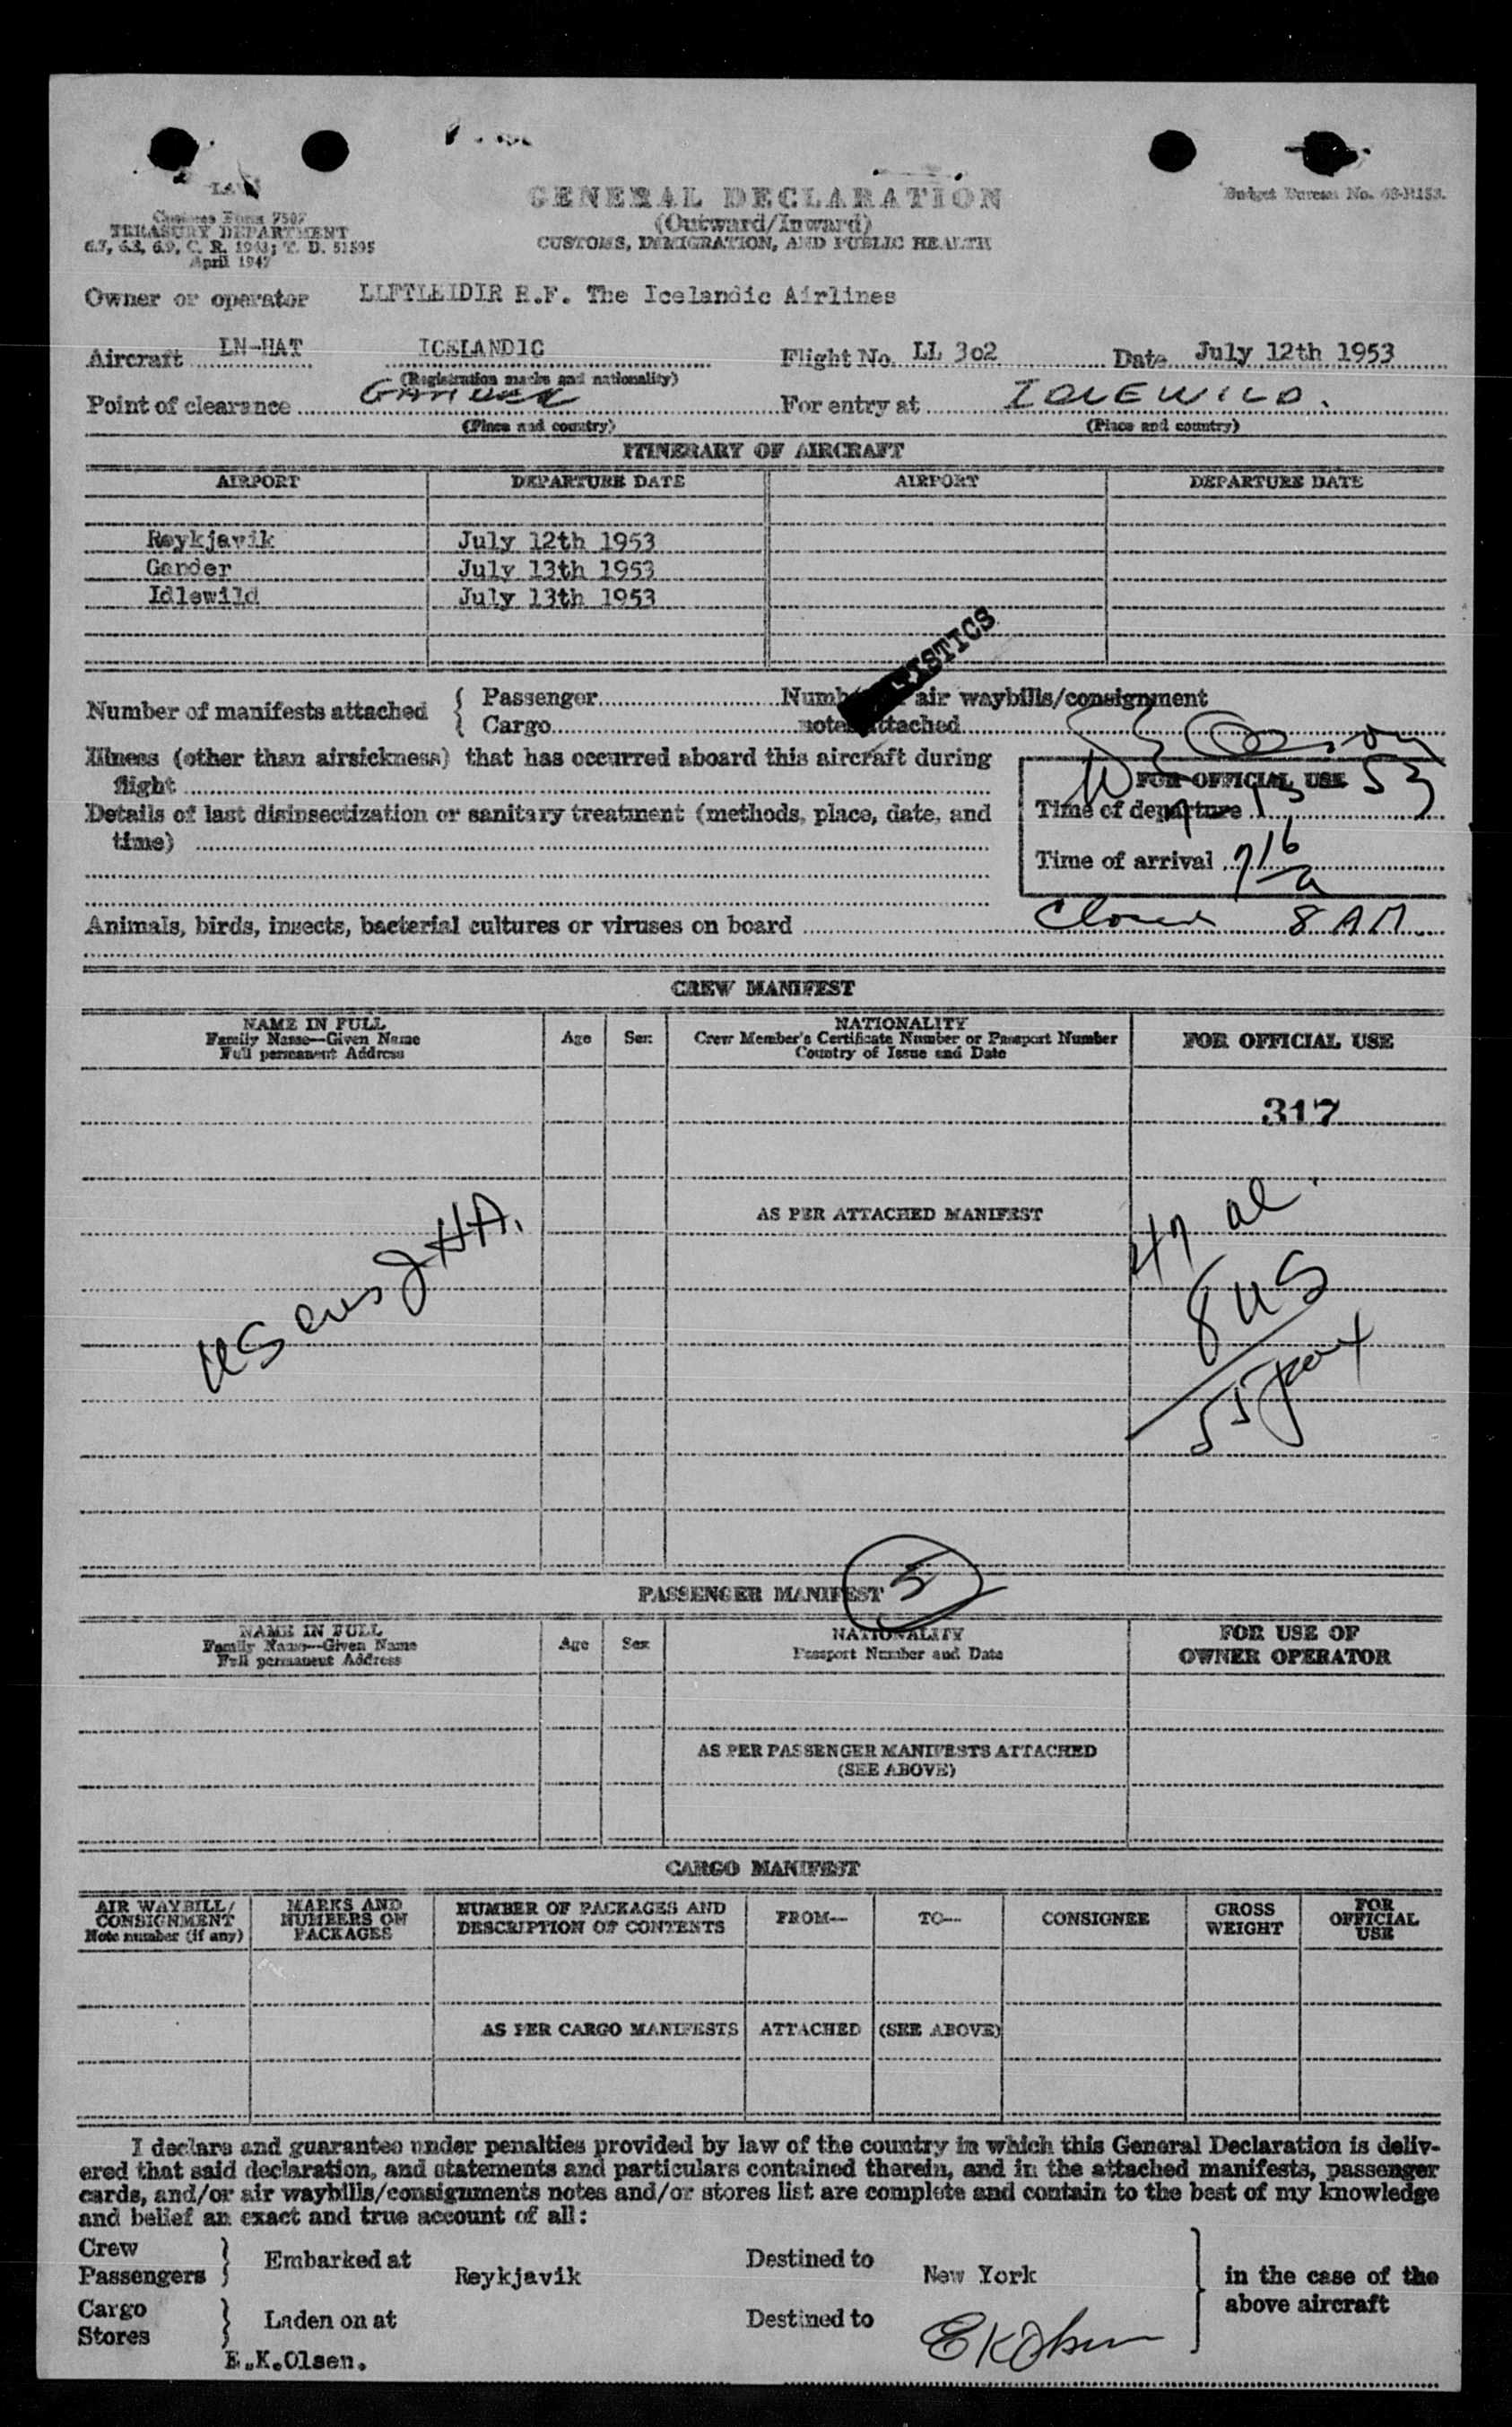 GENERAL DECLARATION
(Outward/Inward)
CUSTOMS, IMMIGRATION, AND PUBLIC HEALTH
Budget Bureau No.
Customs Form 7507
TREASURY DEPARTMENT
6.7, 6.8, 6.9, C. R. 1943; T. D. 51595
April 1947
Owner or operator LLFTLEIDIR H.F. The Icelandic Airlines
Aircraft LN-HAT ICELANDIC Flight No. LL 3o2 Date July 12th 1953
(Registration marks and nationality)
Point of clearance GANDER For entry at IDLEWILD.
(Place and country) (Place and country)
ITINERARY OF AIRCRAFT
AIRPORT DEPARTURE DATE AIRPORT DEPARTURE DATE
Reykjavik July 12th 1953
Gander July 13th 1953
Idlewild July 13th 1953
Number of manifests attached { Passenger Number air waybills/consignment
Cargo notes attached
Illness (other than airsickness) that has occurred aboard this aircraft during
flight
FOR OFFICIAL USE
Details of last disinsectization or sanitary treatment (methods, place, date, and
time)
Time of departure
Time of arrival 7 16 a
Animals, birds, insects, bacterial cultures or viruses on board Closed 8 AM
CREW MANIFEST
NAME IN FULL Age Sex NATIONALITY FOR OFFICIAL USE
Family Name—Given Name Crew Member's Certificate Number or Passport Number
Full permanent Address Country of Issue and Date
317
AS PER ATTACHED MANIFEST
47 al.
8 US
55
PASSENGER MANIFEST 5
NAME IN FULL Age Sex NATIONALITY FOR USE OF
Family Name—Given Name Passport Number and Date OWNER OPERATOR
Full permanent Address
AS PER PASSENGER MANIFESTS ATTACHED
(SEE ABOVE)
CARGO MANIFEST
AIR WAYBILL/ MARKS AND NUMBER OF PACKAGES AND FROM— TO— CONSIGNEE GROSS FOR
CONSIGNMENT NUMBERS ON DESCRIPTION OF CONTENTS WEIGHT OFFICIAL
Note number (if any) PACKAGES USE
AS PER CARGO MANIFESTS ATTACHED (SEE ABOVE)
I declare and guarantee under penalties provided by law of the country in which this General Declaration is deliv-
ered that said declaration, and statements and particulars contained therein, and in the attached manifests, passenger
cards, and/or air waybills/consignments notes and/or stores list are complete and contain to the best of my knowledge
and belief an exact and true account of all:
Crew
Passengers } Embarked at Reykjavik Destined to New York in the case of the
above aircraft
Cargo
Stores } Laden on at Destined to
E.K.Olsen. EKOlsen